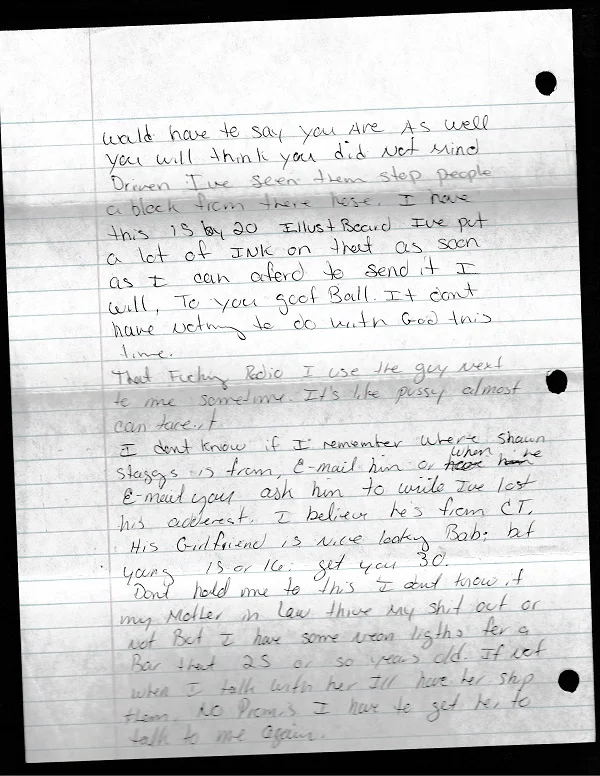 would have to say you Are As well
you will think you did Not Mind
Driven I've seen them stop people
a block from there hose. I have
this 15 by 20 Illust Board I've put
a lot of INK on that as soon
as I can aferd to send it I
will, To you goof Ball. It dont
have Nothing to do with God this
time.
That Fucking Radio I use the guy Next
to me sometime. It's like pussy almost
can
I dont know if I remember where shawn
Staggs is from, E-mail him or when
E-mail you ask him to write I've lost
his adderest. I believe he's from CT.
His Girlfriend is Nice looking Bab: but
young 15 or 16: get you 30.
Dont hold me to this I dont know if
my Mother in law throw my shit out or
Not But I have some neon ligths for a
Bar that 25 or so years old. If Not
when I talk with her Ill have her ship
them. NO Promis I have to get her to
talk to me again.